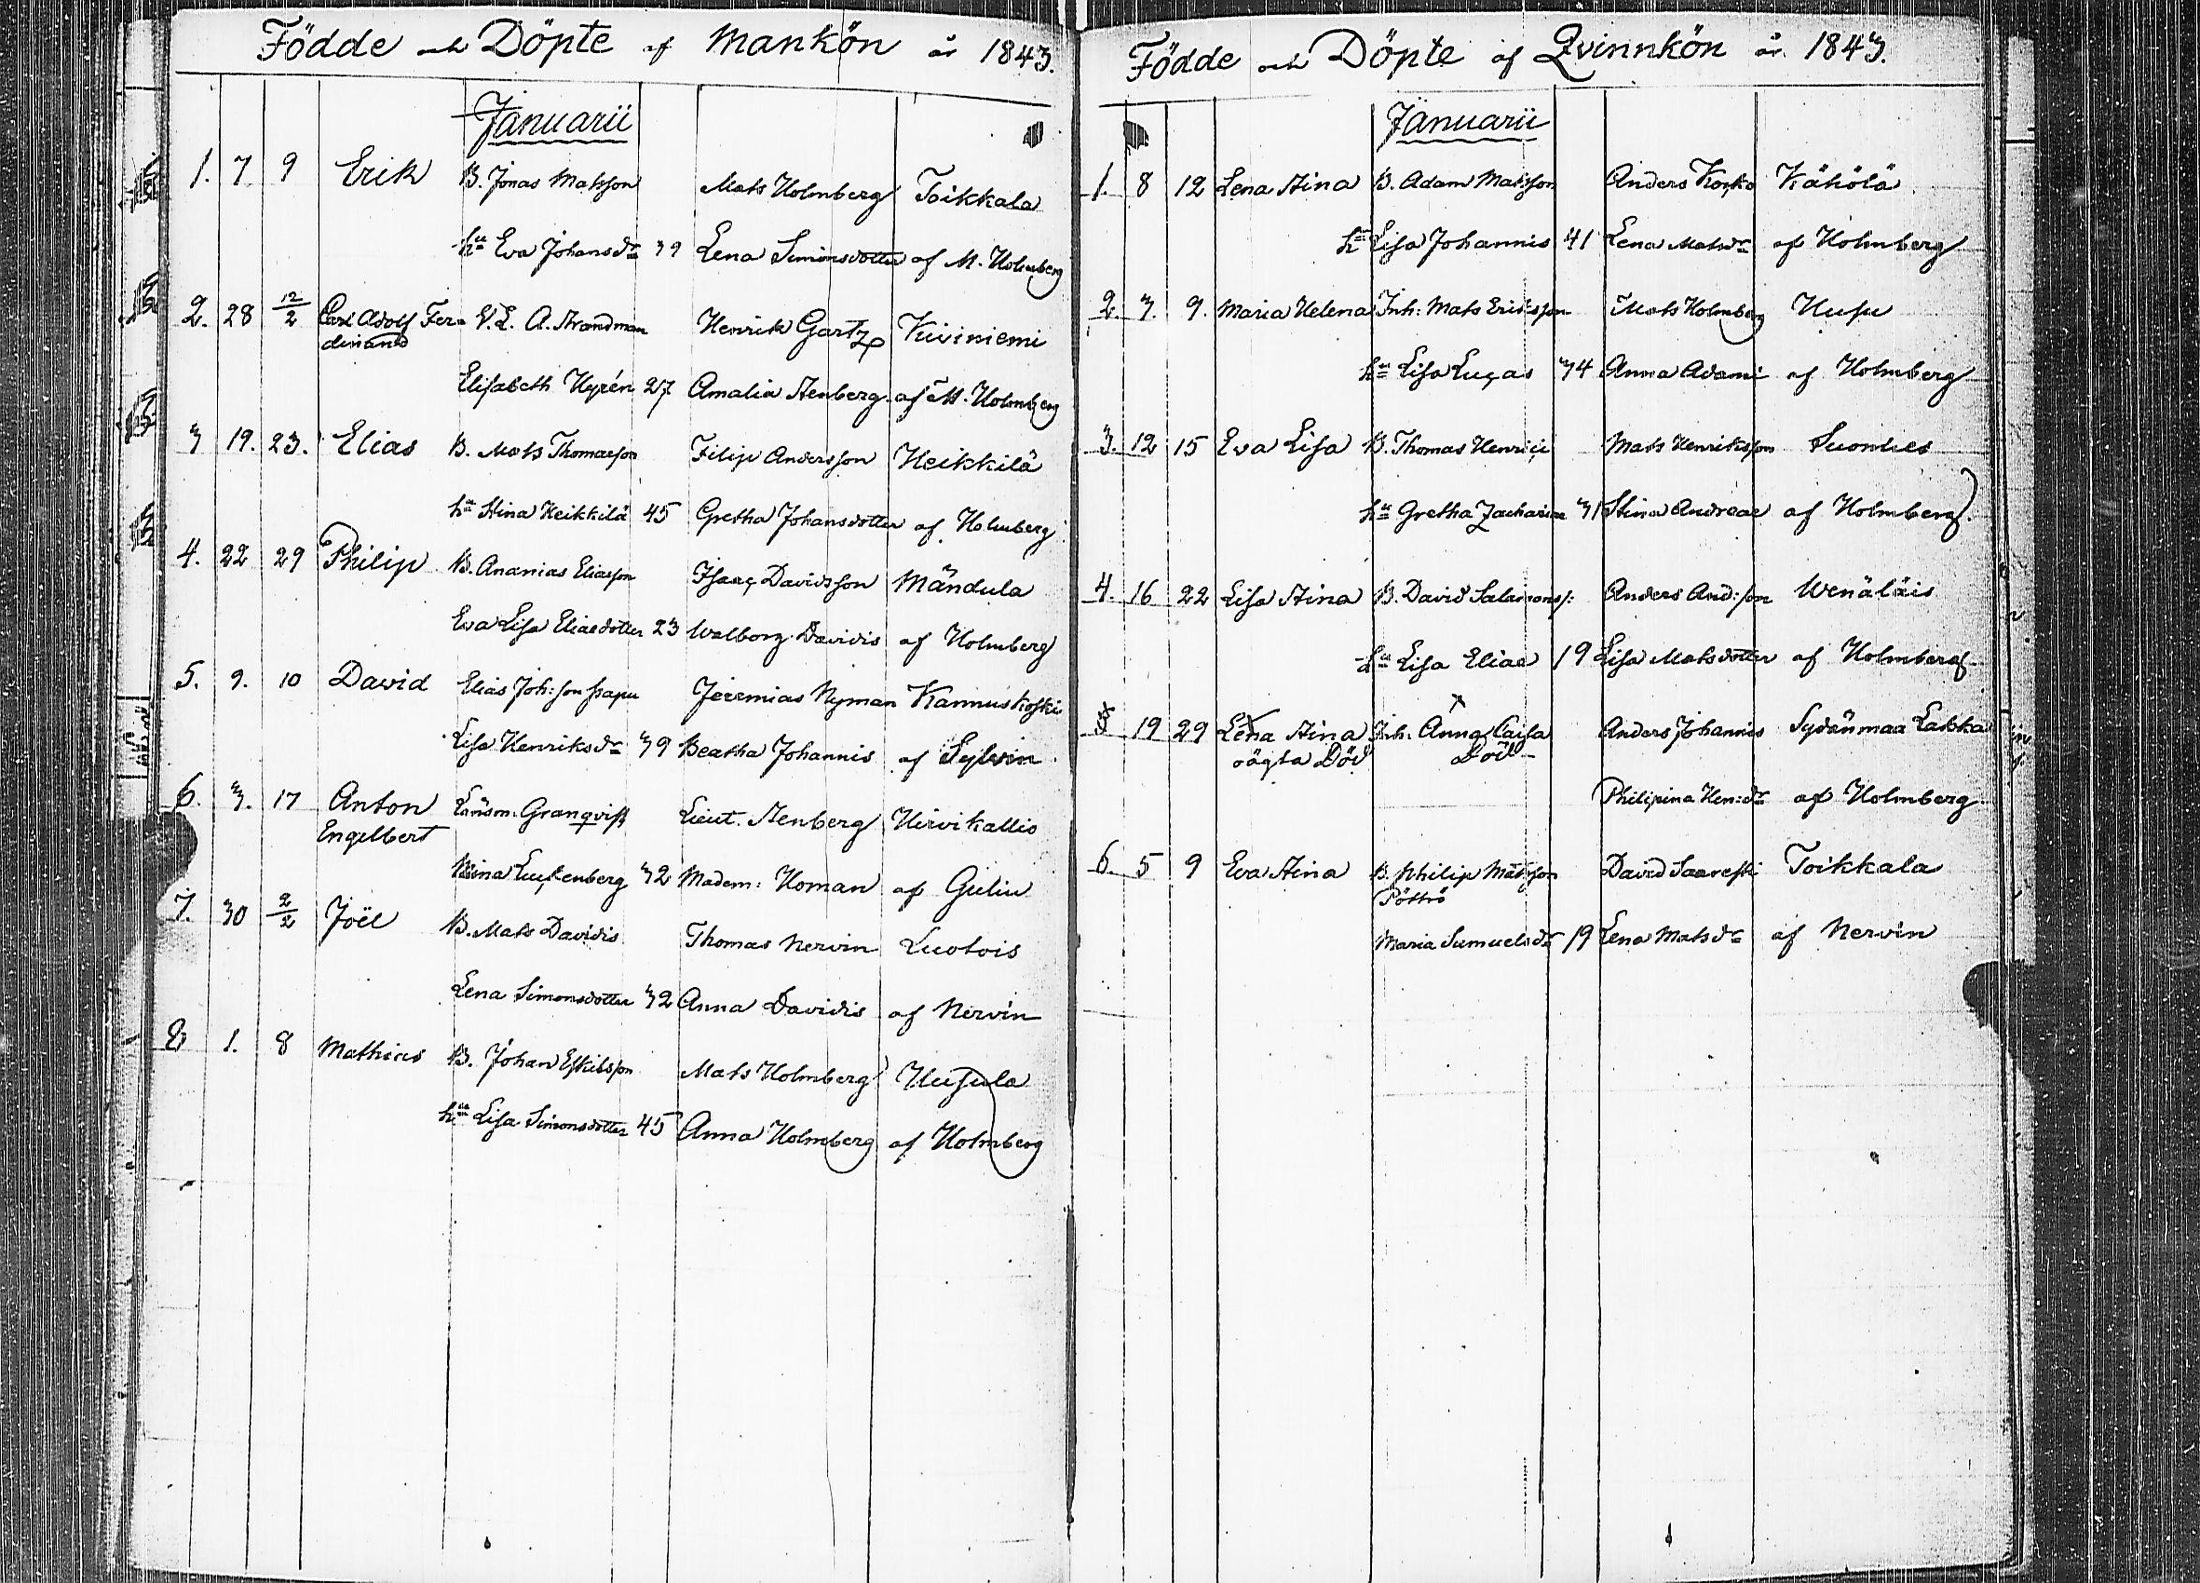 Födde och Döpte af Mankön år 1843.
Januarii
1. 7 9 Erik B. Jonas Matsson Mats Holmberg Toikkala
hu Eva Johansdr 39 Lena Simonsdotter af M. Holmberg
2. 28 12/2 Carl Adolf Fer- V.L. A. Strandman Henrik Gartz Kiviniemi
dinand
Elisabeth Hyrén 27 Amalia Stenberg af M. Holmberg
3 19. 23. Elias B. Mats Thomasson Filip Andersson Heikkilä
hu Stina Heikkilä 45 Gretha Johansdotter af Holmberg
4. 22 29 Philip B. Ananias Eliasson Isaac Davidsson Mändula
Eva Lisa Eliasdotter 23 Walborg Davidis af Holmberg
5. 9. 10 David Elias Joh:son Jeremias Nyman Kannuskoski
Lisa Henriksdr 39 Beatha Johannis af Sylvin
6. 3. 17 Anton Länsm. Granqvist Lieut. Stenberg Hirvikallio
Engelbert
32 Madem: Homan af
7. 30 2/2 Joël B. Mats Davidis Thomas Nervin Luotois
Lena Simonsdotter 32 Anna Davidis af Nervin
8 1. 8 Mathias B. Johan Eskilsson Mats Holmberg Husula
hu Lisa Simonsdotter 45 Anna Holmberg af Holmberg
Födde och Döpte af Qvinnkön år 1843.
Januarii
1. 8 12 Lena Stina B. Adam Matsson Anders Korko Kähölä
hu Lisa Johannis 41 Lena Matsdr af Holmberg
2. 3. 9. Maria Helena Inh: Mats Eriksson Mats Holmberg Husu
hu Lisa Lucas 34 Anna Adami af Holmberg
3. 12 15 Eva Lisa B. Thomas Henrici Mats Henriksson Suomues
hu Gretha Zachariae 31 Stina Andreae af Holmberg.
4. 16 22 Lisa Stina B. David Salamons: Anders And:son Wenäläis
hu Lisa Eliae 19 Lisa Matsdotter af Holmberg
5 19 29 Lena Stina Inh. Anna Caisa Anders Johannis Sydänmaa Labka
oägta Död Död
Philipina Hen:dr af Holmberg
6. 5 9 Eva Stina B. Philip Matsson David Saaresti Toikkala
Pöttrö
Maria Samuelsdr 19 Lena Matsdr af Nervin